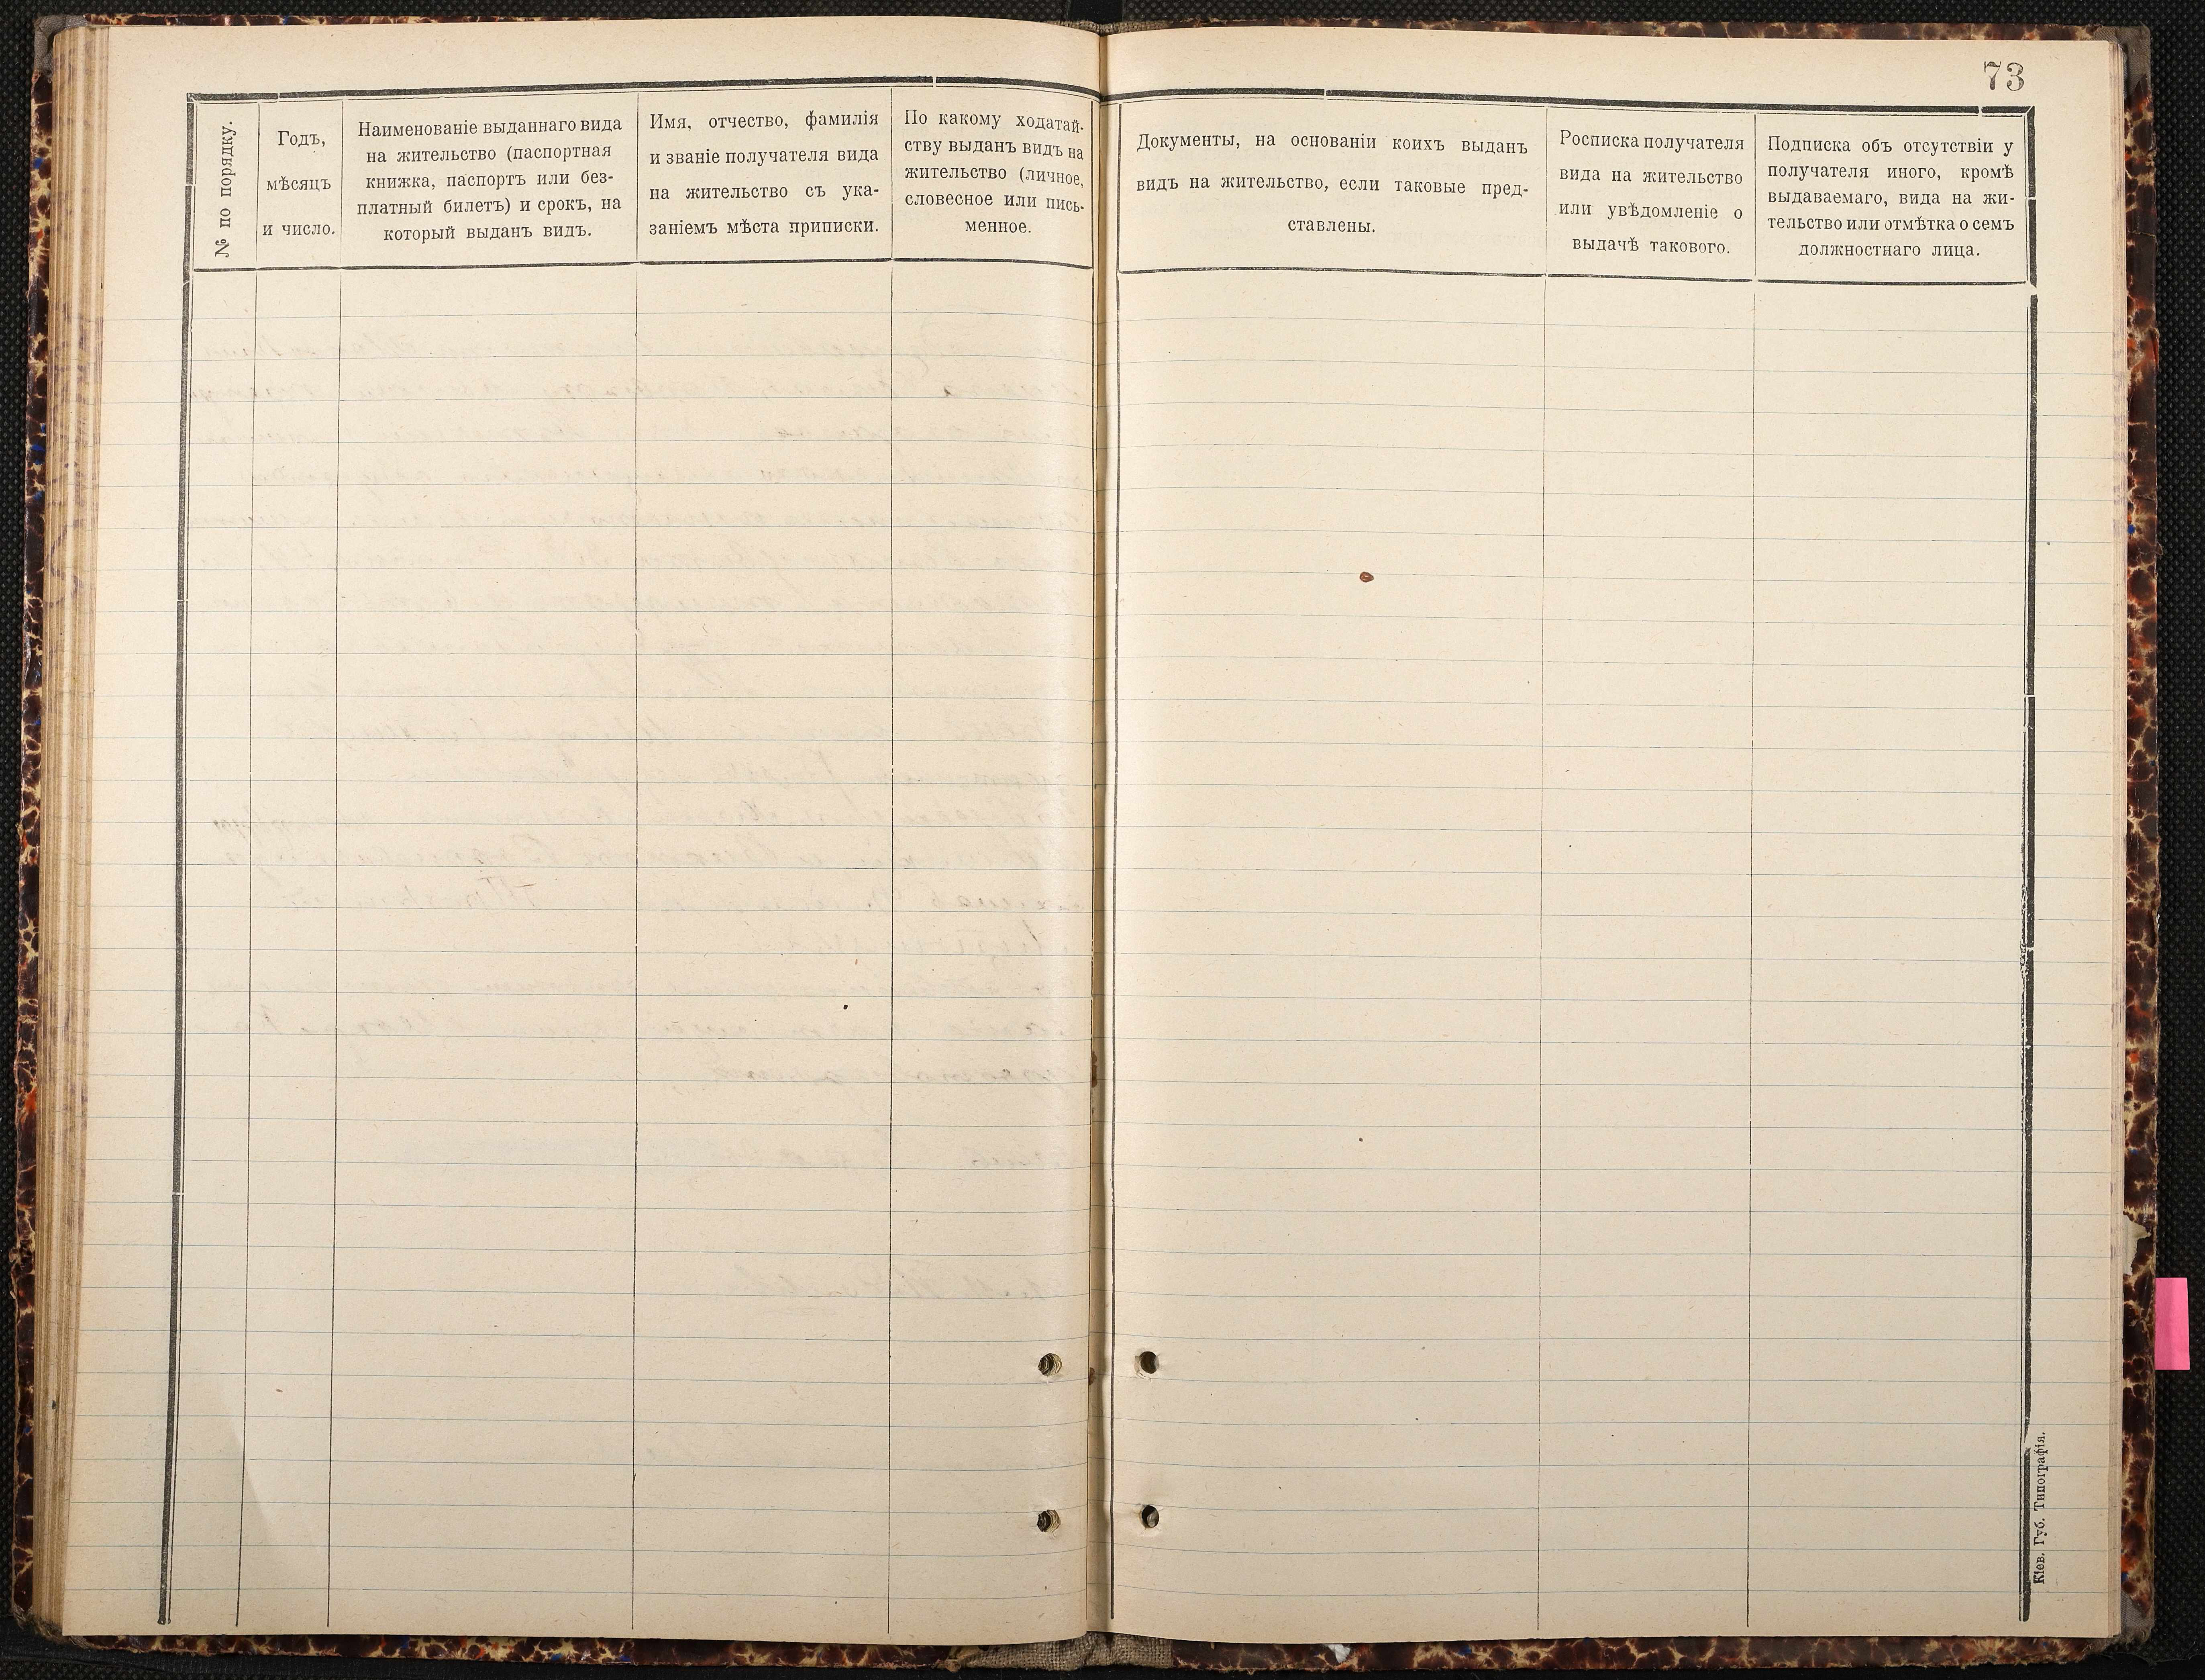 73
№ по порядку.
Годъ,
мѣсяцъ
и число.
Наименованіе выданнаго вида
на жительство (паспортная
книжка, паспортъ или без-
платный билетъ) и срокъ, на
который выданъ видъ.
Имя, отчество, фамилія
и званіе получателя вида
на жительство съ ука-
заніемъ мѣста приписки.
По какому ходатай-
ству выданъ видъ на
жительство (личное,
словесное или пись-
менное.
Документы, на основаніи коихъ выданъ
видъ на жительство, если таковые пред-
ставлены.
Росписка получателя
вида на жительство
или увѣдомленіе о
выдачѣ такового.
Подписка объ отсутствіи у
получателя иного, кромѣ
выдаваемаго, вида на жи-
тельство или отмѣтка о семъ
должностнаго лица.
Кіев. Губ. Типографія.